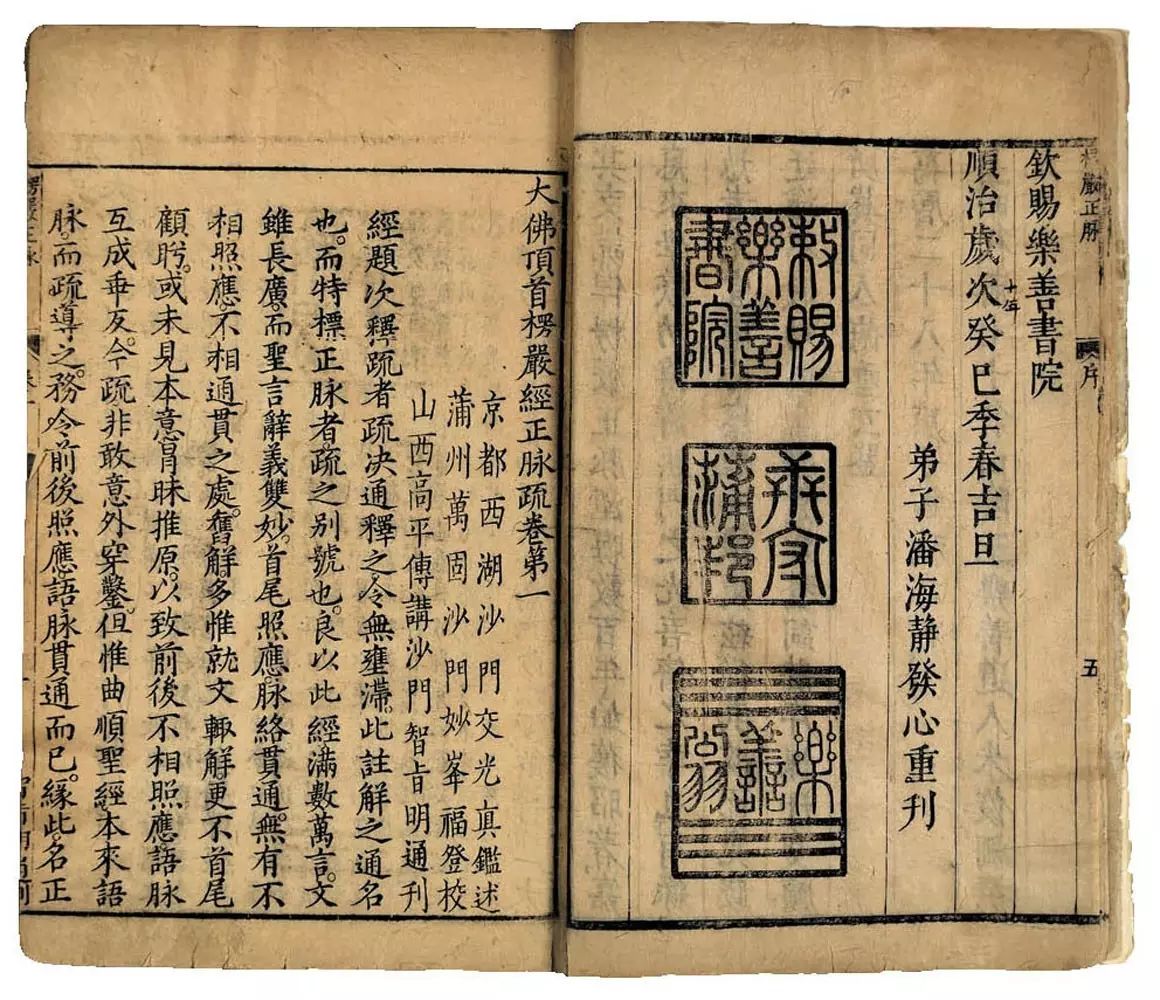 楞嚴正脉
序
五
欽賜樂善書院
順治十年歲次癸巳季春吉旦
弟子潘海静發心重刊
敕賜
樂善
書院
樂
善
翁
大佛頂首楞嚴經正脉疏卷第一
京都西湖沙門交光真鑑述
蒲州萬固沙門妙峯福登校
山西高平傳講沙門智旨明通刊
經題次釋疏者疏决通釋之令無壅滯。此註解之通名
也。而特標正脉者。疏之别號也。良以此經滿數萬言。文
雖長廣。而聖言辭義雙妙。首尾照應。脉絡貫通。無有不
相照應不相通貫之處。舊解多惟就文輙解更不首尾
顧盻。或未見本意。冐昧推原。以致前後不相照應語脉
互成乖反。今疏非敢意外穿鑿。但惟曲順聖經本來語
脉。而疏導之。務令前後照應語脉貫通而已。緣此名正